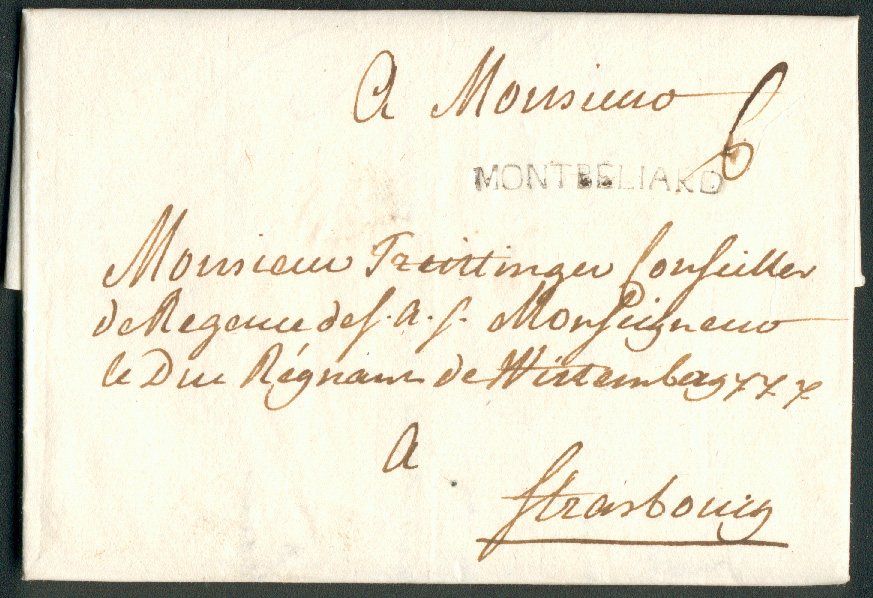 A Monsieur
6
MONTBELIARD
Monsieur Treittinger Conseiller
de Regence de S. A. S. Monseigneur
le Duc Régnant de Wirtemberg xxx
A
Strasbourg